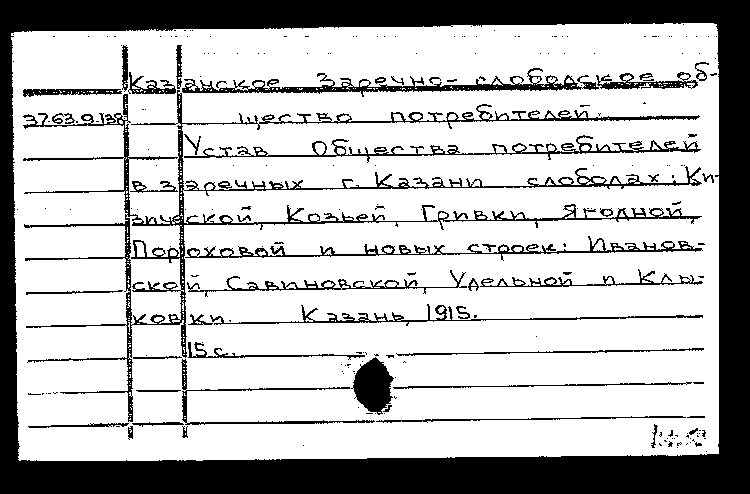 Казанское Заречно-слободское об-
37.63.9.138 щество потребителей.
Устав Общества потребителей
в заречных г. Казани слободах: Ки-
зической, Козьей, Гривки, Ягодной,
Пороховой и новых строек: Иванов-
ской, Савиновской, Удельной и Клы-
ковки. Казань, 1915.
15 с.